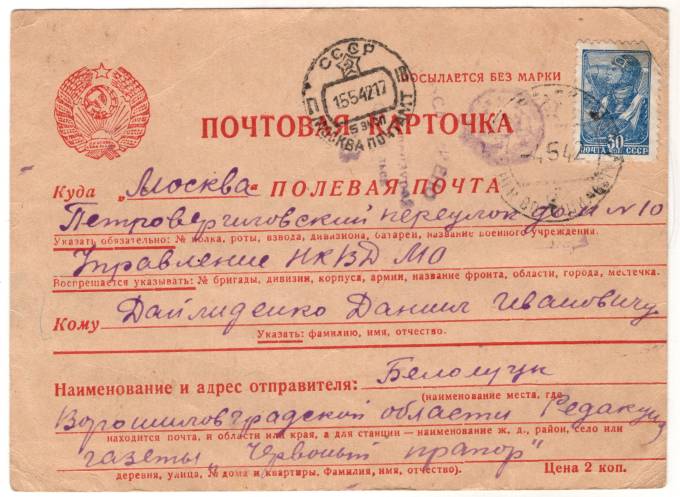 СССР
15542 17
МОСКВА ПОЧТАМТ
ПОСЫЛАЕТСЯ БЕЗ МАРКИ
30
ПОЧТА СССР
-4 5 42
ПОЧТОВАЯ КАРТОЧКА
Куда „Москва" ПОЛЕВАЯ ПОЧТА
Петроверигиловский переулок дом N 10
Указать обязательно: № полка, роты, взвода, дивизиона, батареи, название военного учреждения.
Управление НКВД МО
Воспрещается указывать: № бригады, дивизии, корпуса, армии, название фронта, области, города, местечка.
Кому Дайлиденко Даниил Ивановичу
Указать: фамилию, имя, отчество.
Наименование и адрес отправителя: Белолуцк
(наименование места, где
Ворошиловградской области Редакция
находится почта, и области или края, а для станции — наименование ж. д., район, село или
газеты „Червоный прапор"
деревня, улица, № дома и квартиры. Фамилия, имя, отчество).
Цена 2 коп.